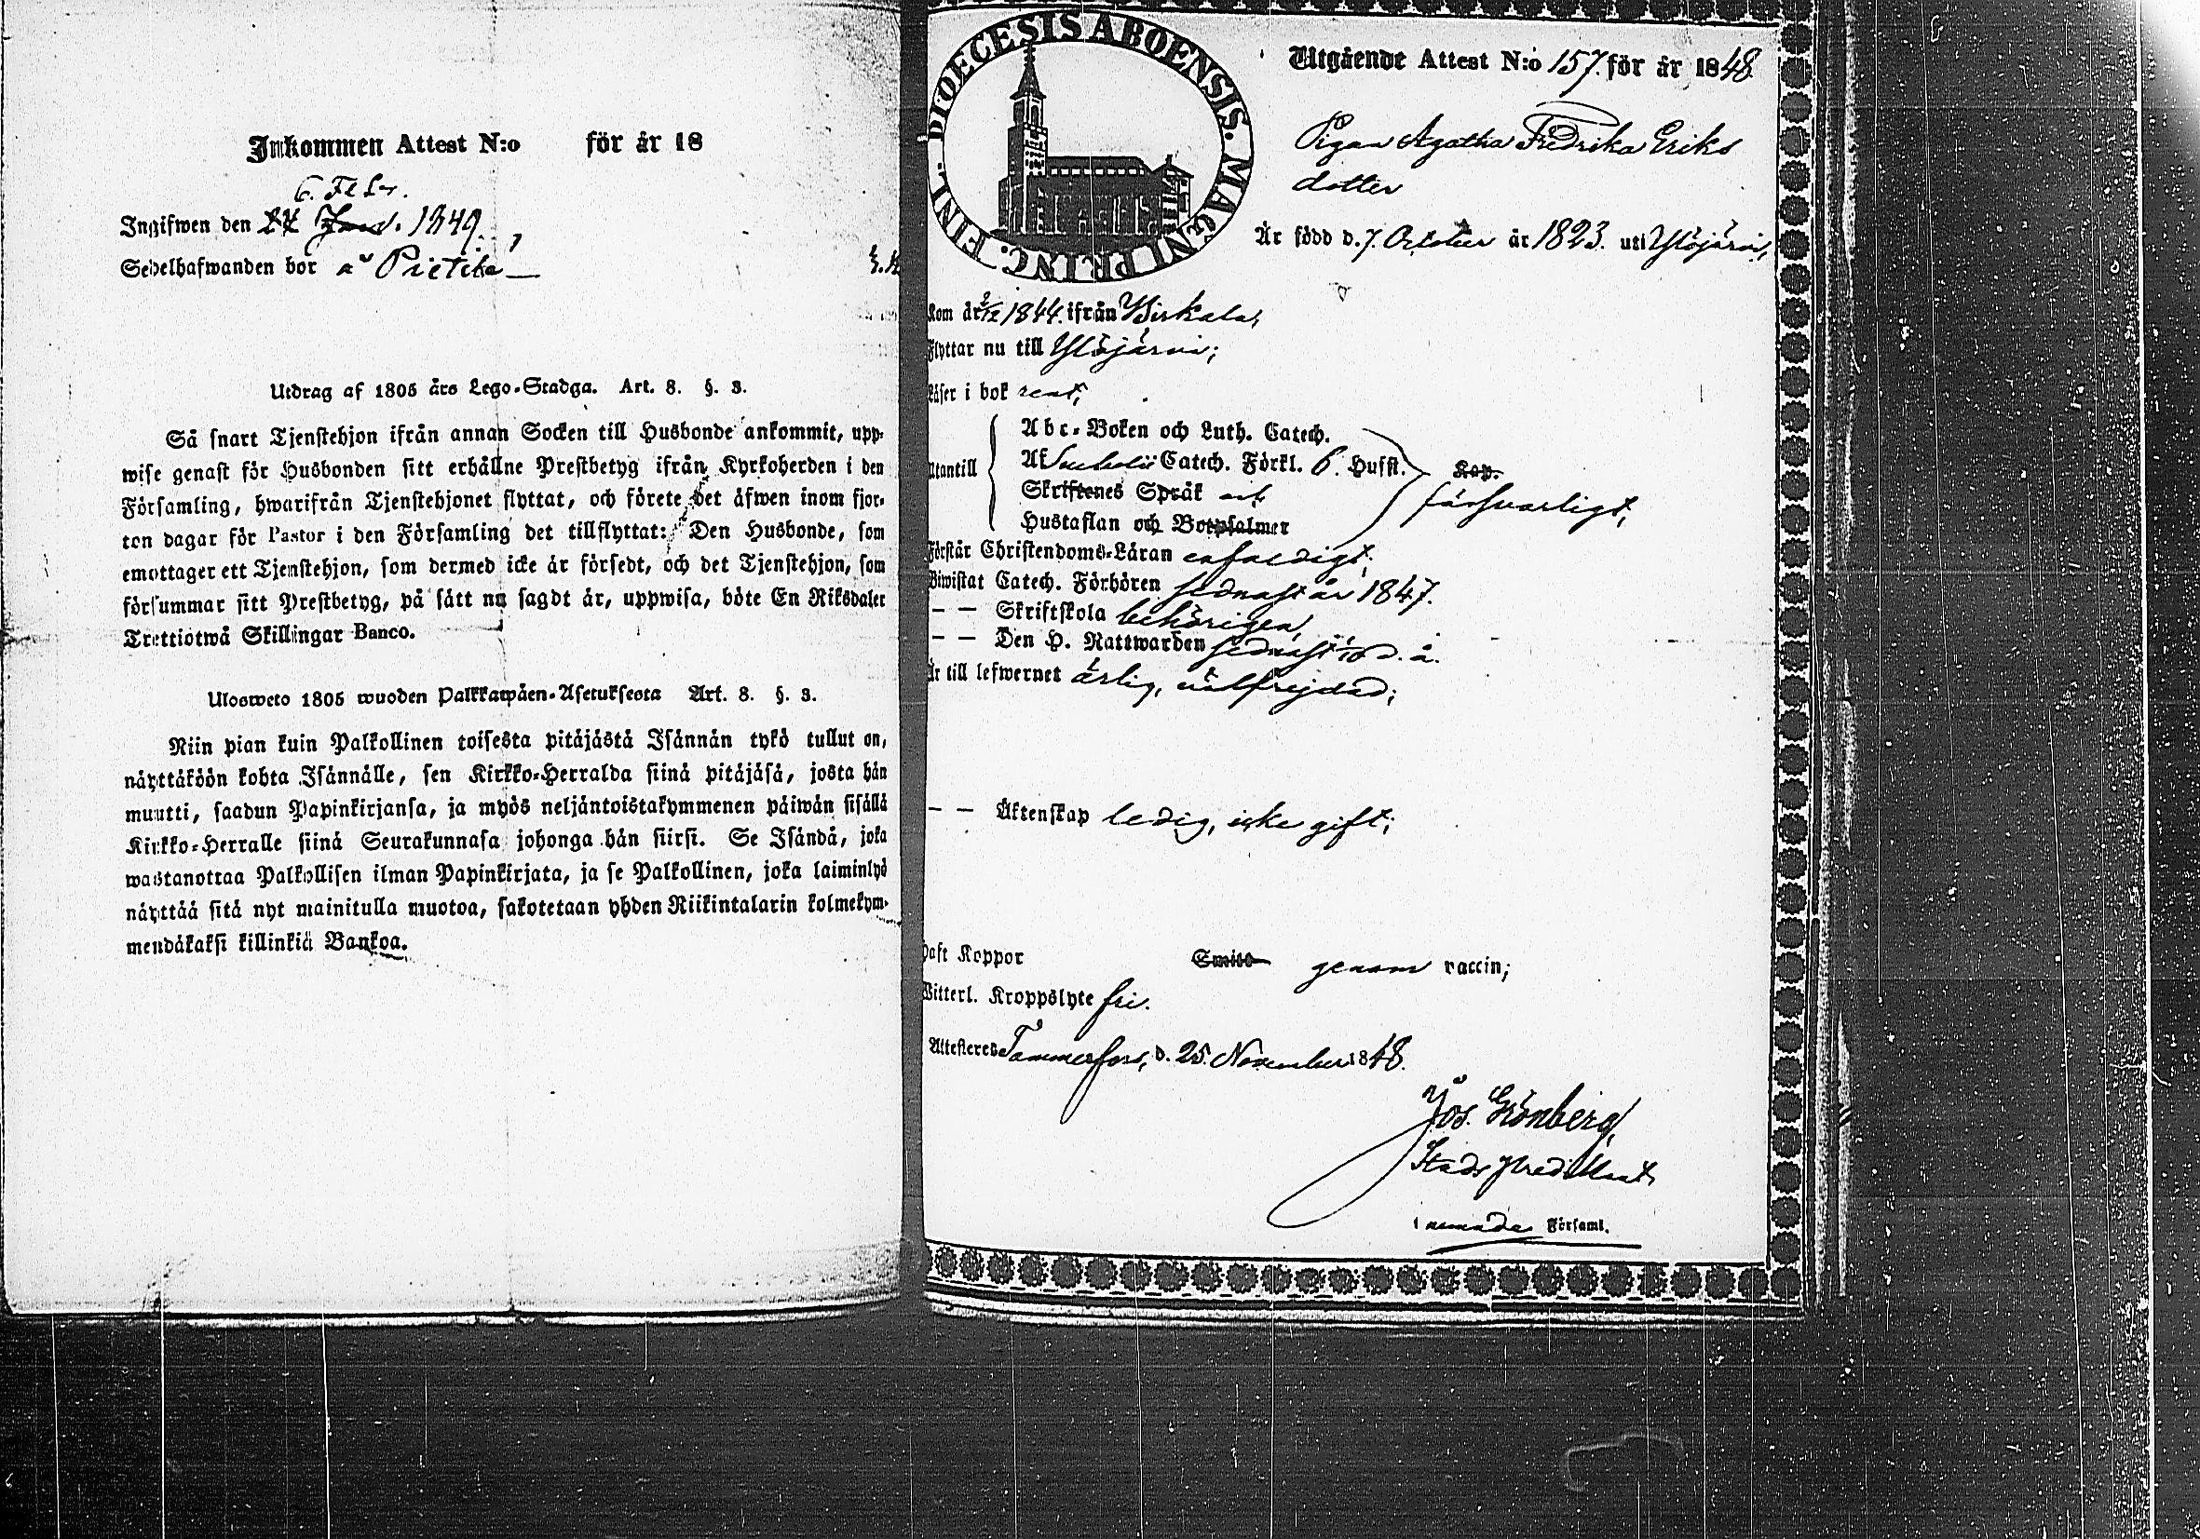 Inkommen Attest N:o för år 18
6. Febr.
Ingifwen den 24 Jan. 1849.
Sedelhafwanden bor å Pietilä
Utdrag af 1805 års Lego-Stadga. Art. 8. §. 3.
Så snart Tjenstehjon ifrån annan Socken till Husbonde ankommit, upp-
wise genast för Husbonden sitt erhållne Prestbetyg ifrån Kyrkoherden i den
Församling, hwarifrån Tjenstehjonet flyttat, och förete det äfwen inom fjor-
ton dagar för Pastor i den Församling det tillflyttat: Den Husbonde, som
emottager ett Tjenstehjon, som dermed icke är försedt, och det Tjenstehjon, som
försummar sitt Prestbetyg, på sätt nu sagdt är, uppwisa, böte En Riksdaler
Trettiotwå Skillingar Banco.
Ulosweto 1805 wuoden Palkkawäen-Asetuksesta Art. 8. §. 3.
Niin pian kuin Palkollinen toisesta pitäjästä Isännän tykö tullut on,
näyttäköön kohta Isännälle, sen Kirkko-Herralda siinä pitäjäsä, josta hän
muutti, saadun Papinkirjansa, ja myös neljäntoistakymmenen päiwän sisällä
Kirkko-Herralle siinä Seurakunnasa johonga hän siirsi. Se Isändä, joka
wastanottaa Palkollisen ilman Papinkirjata, ja se Palkollinen, joka laiminlyö
näyttää sitä nyt mainitulla muotoa, sakotetaan yhden Riikintalarin kolmekym-
mendäkaksi killinkiä Bankoa.
DIOECESIS ABOENSIS. MAGNI PRINC. FINL.
Utgående Attest N:o 157. för år 1848.
Pigan Agatha Fredrika Eriks
dotter
Är född d. 7. October år 1823. uti Ylöjärvi,
Kom år 2/12 1844. ifrån Birkala,
Flyttar nu till Ylöjärvi;
Läser i bok rent,
Abc-Boken och Luth. Catech.
Utantill Af Svebelii Catech. Förkl. 6. Husst. Kap.
Skriftenes Språk och försvarligt,
Hustaflan och Botpsalmer
Förstår Christendoms-Läran enfaldigt;
Biwistat Catech. Förhören sednast år 1847.
— — Skriftskola behörigen,
— — Den H. Nattwarden sednast 1/10 d. å.
Är till lefwernet ärlig, välfrejdad;
— — Äktenskap ledig, icke gift;
Haft Koppor Smitto genom vaccin;
Witterl. Kroppslyte fri.
Attesteres Tammerfors, d. 25. November 1848.
Jos. Grönberg,
Stads Predikant,
i nämnde Församl.